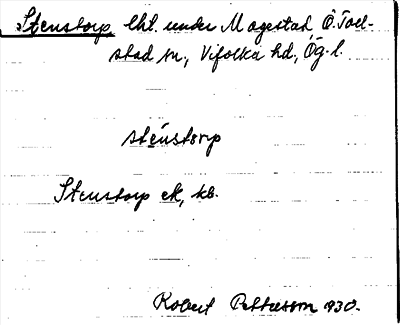 Stenstorp lht. under Magestad Ö. Toll-
stad sn, Vifolka hd., Ög. l.
sténstorp
Stenstorp ek, kb.
Robert Pettersson 1930.